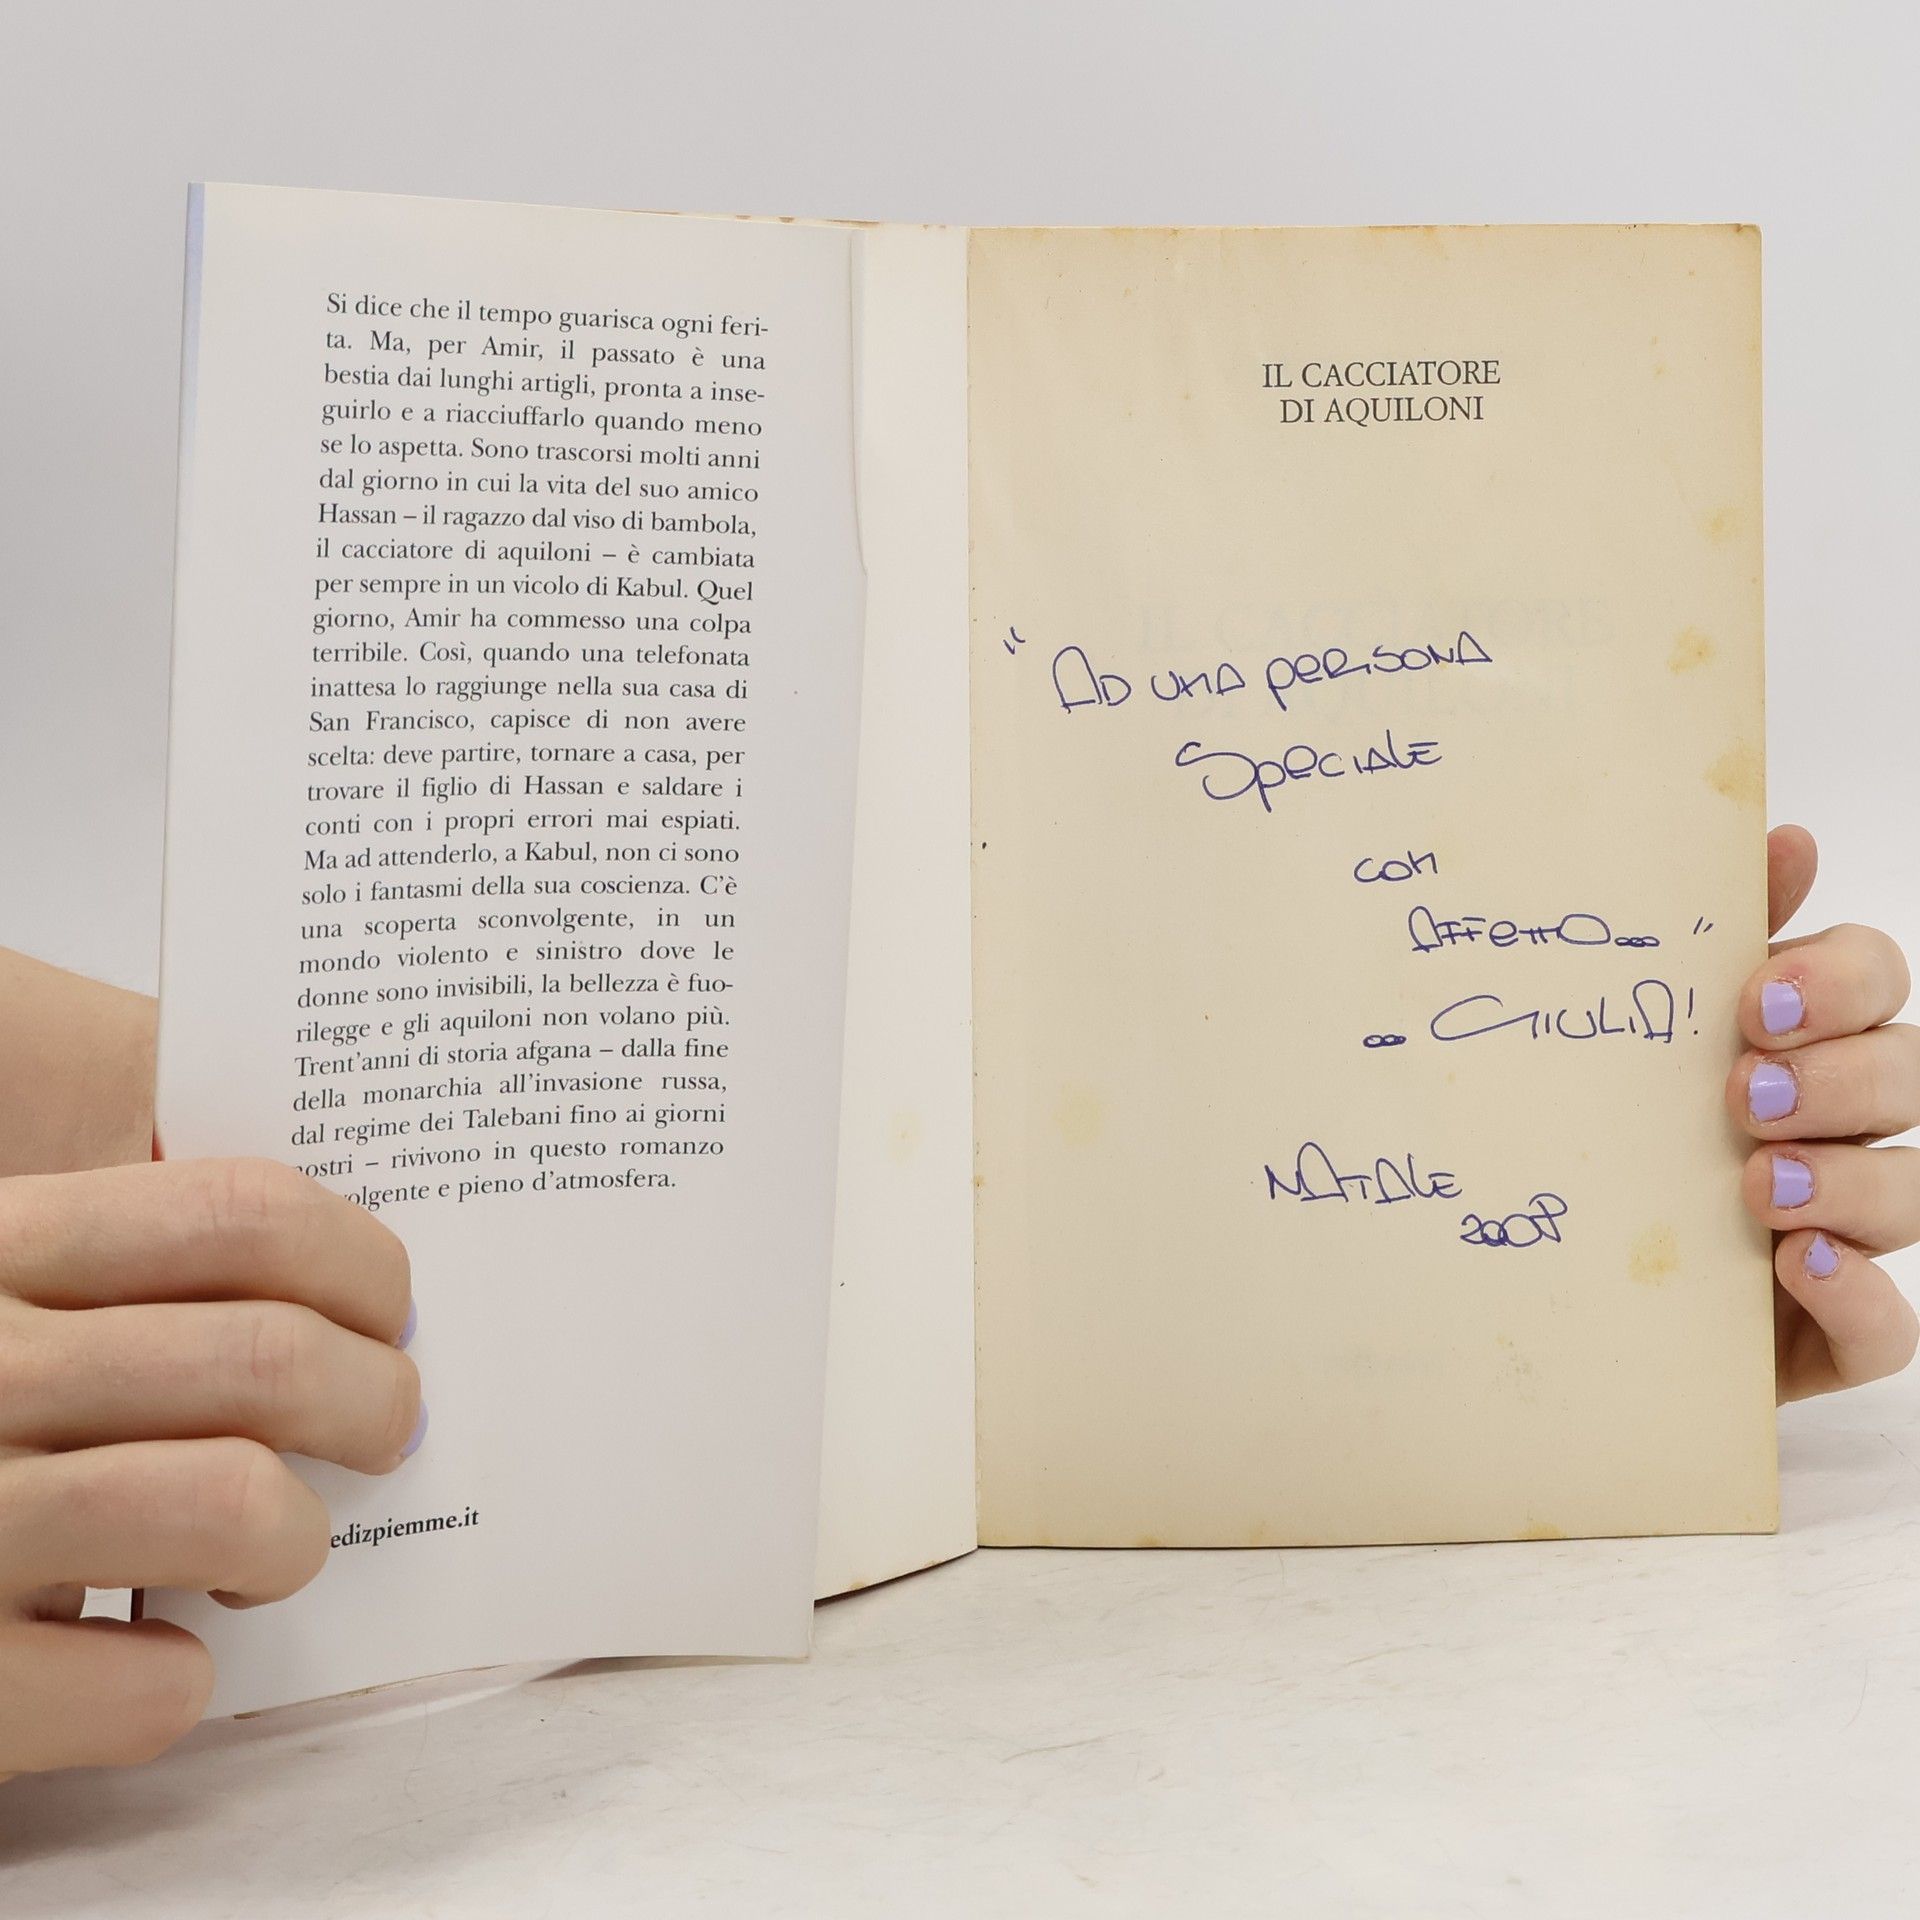 Si dice che il tempo guarisca ogni feri-
ta. Ma, per Amir, il passato è una
bestia dai lunghi artigli, pronta a inse-
guirlo e a riacciuffarlo quando meno
se lo aspetta. Sono trascorsi molti anni
dal giorno in cui la vita del suo amico
Hassan – il ragazzo dal viso di bambola,
il cacciatore di aquiloni – è cambiata
per sempre in un vicolo di Kabul. Quel
giorno, Amir ha commesso una colpa
terribile. Così, quando una telefonata
inattesa lo raggiunge nella sua casa di
San Francisco, capisce di non avere
scelta: deve partire, tornare a casa, per
trovare il figlio di Hassan e saldare i
conti con i propri errori mai espiati.
Ma ad attenderlo, a Kabul, non ci sono
solo i fantasmi della sua coscienza. C'è
una scoperta sconvolgente, in un
mondo violento e sinistro dove le
donne sono invisibili, la bellezza è fuo-
rilegge e gli aquiloni non volano più.
Trent'anni di storia afgana – dalla fine
della monarchia all'invasione russa,
dal regime dei Talebani fino ai giorni
nostri – rivivono in questo romanzo
volgente e pieno d'atmosfera.
edizpiemme.it
IL CACCIATORE
DI AQUILONI
"AD UNA PERSONA
SPECIALE
CON
AFFETTO..."
... GIULIA!
NATALE